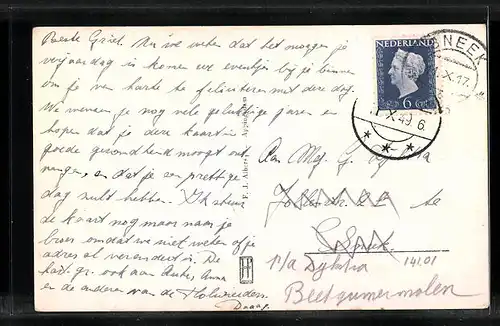 Beste Griet. Nu we weten dat het morgen je
verjaardag is komen we eventjes bij je binnen
om je van harte te feliciteren met deze dag.
We wensen je nog vele gelukkige jaren en
hopen dat je deze kaart in
goede gezondheid moogt ont-
vangen, en dat je een prettige
dag zult hebben. Ik stuur
de kaart nog maar naar je
broer omdat we niet weten of je
adres al veranderd is. De
hart. gr. ook aan Anna
en de anderen van de
Daag.
F. J. Appingedam
NEDERLAND
6
SNEEK
X.17
X 49 6.
Aan Mej. G.
te
Sneek.
p/a Dijkstra
141.01
Beetgumermolen